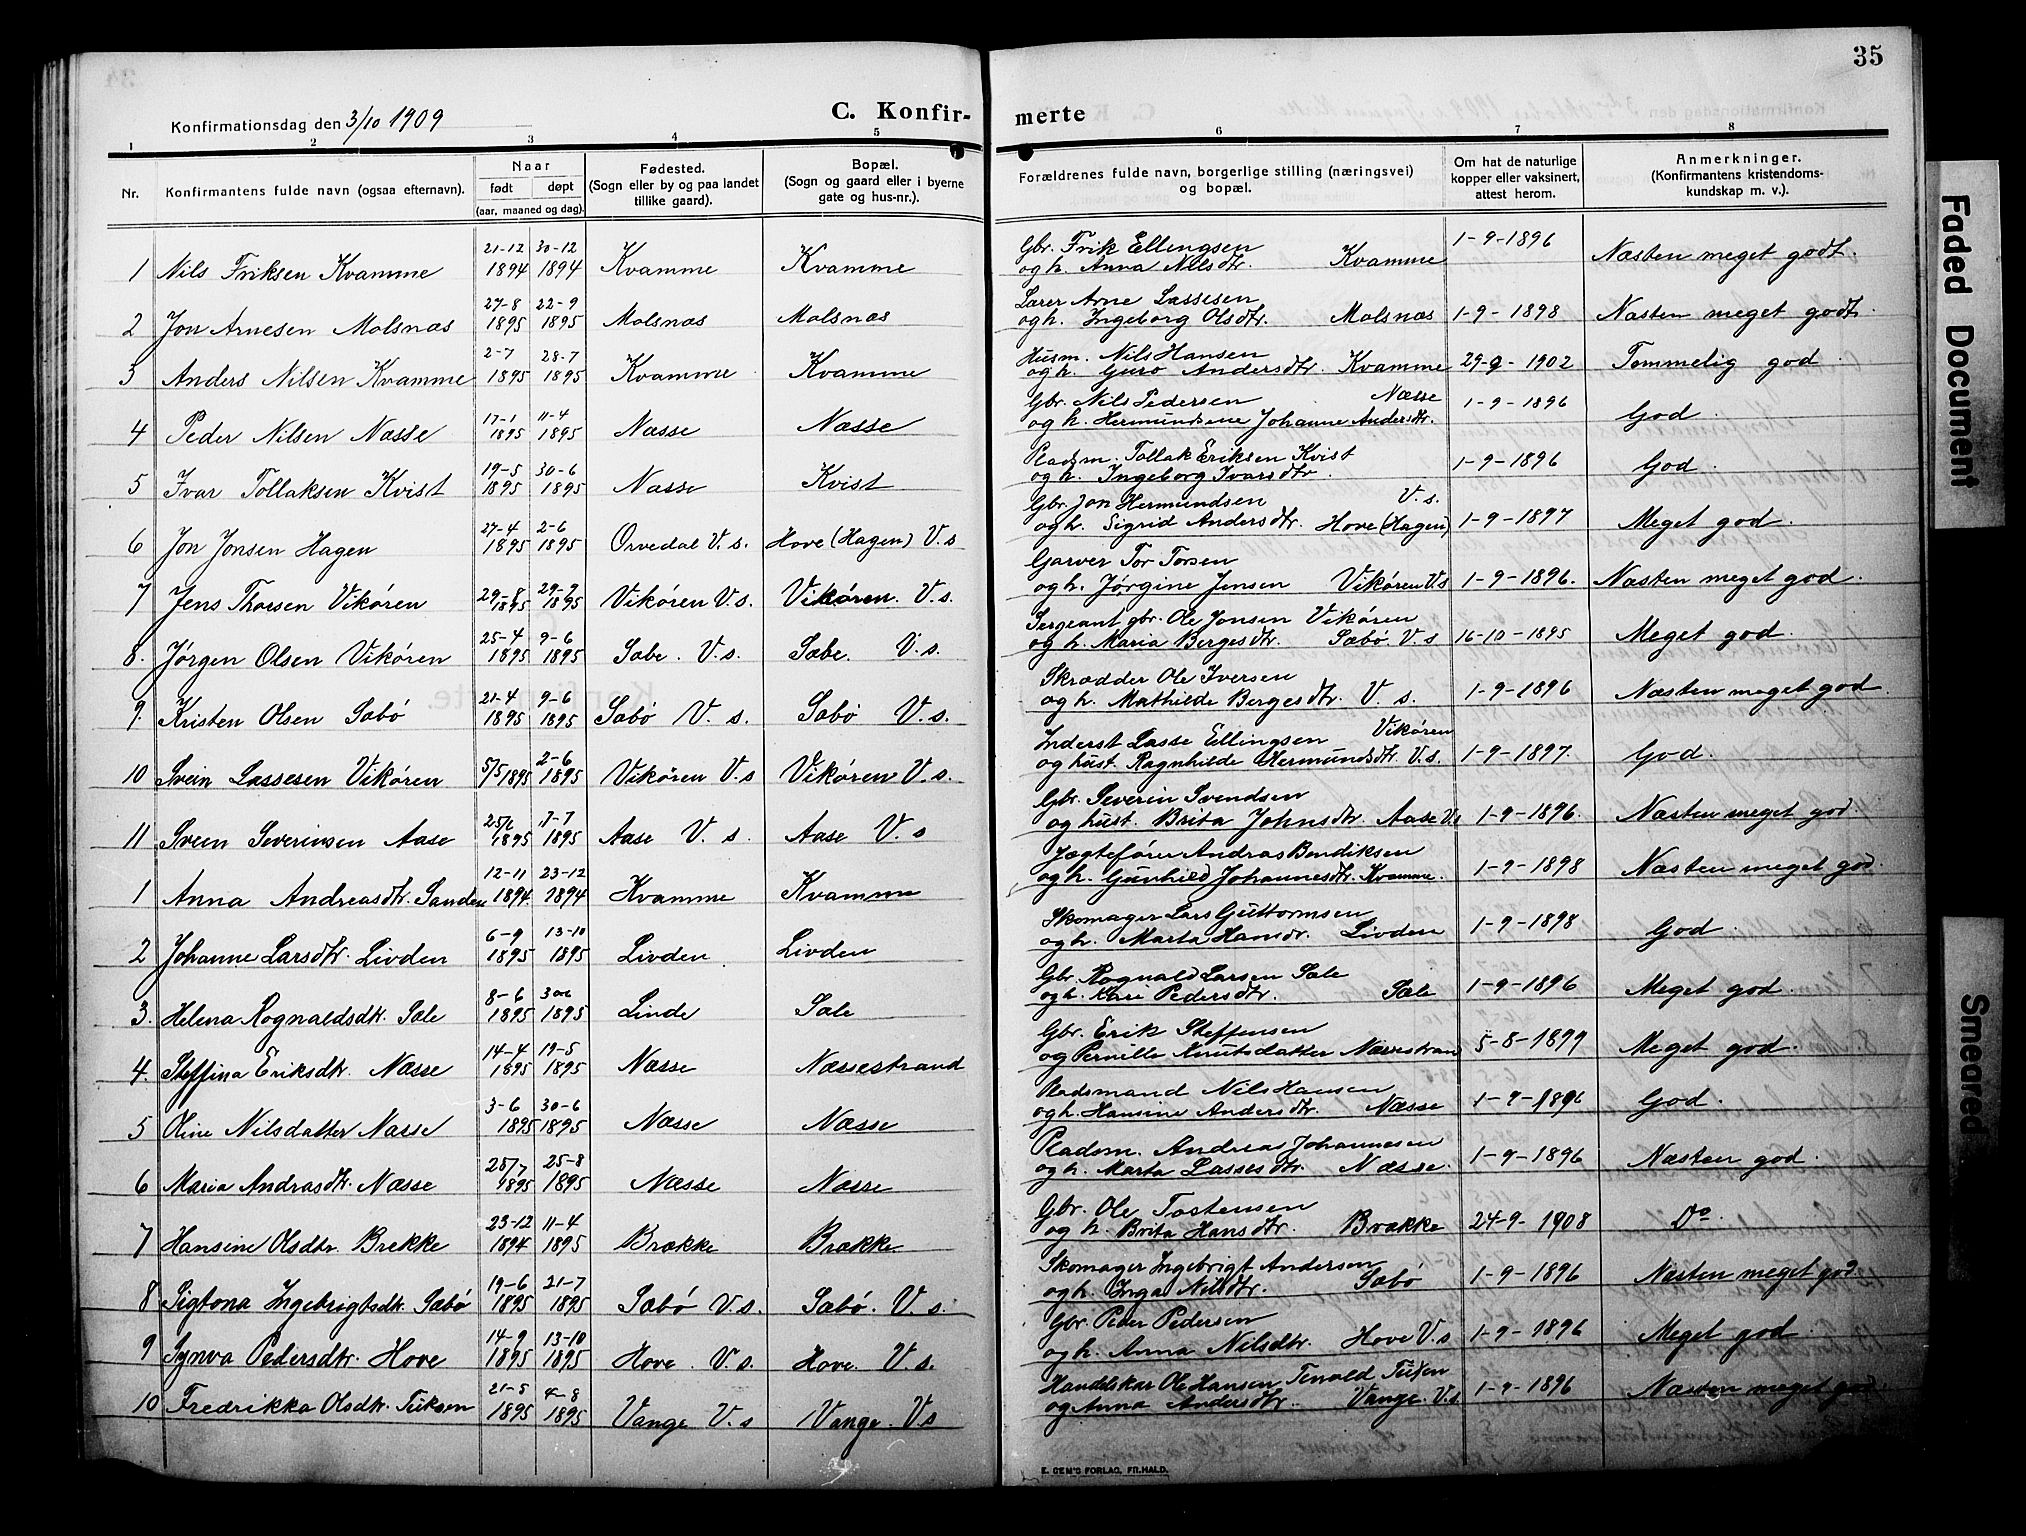 35
Konfirmationsdag den 3/10 1909
C. Konfir-
merte
1 2 3 4 5 6 7 8
Nr. Konfirmantens fulde navn (ogsaa efternavn). Naar født døpt (aar, maaned og dag). Fødested. (Sogn eller by og paa landet tillike gaard). Bopæl. (Sogn og gaard eller i byerne gate og hus-nr.). Forældrenes fulde navn, borgerlige stilling (næringsvei) og bopæl. Om hat de naturlige kopper eller vaksinert, attest herom. Anmerkninger. (Konfirmantens kristendoms-kundskap m. v.).
1 Nils Eriksen Kvamme 21-12 1894 30-12 1894 Kvamme Kvamme Gbr. Erik Ellingsen og h. Anna Nilsdtr. Kvamme 1-9-1896 Næsten meget godt.
2 Jon Arnesen Molsnæs 27-8 1895 22-9 1895 Molsnæs Molsnæs Lærer Arne Lassesen og h. Ingeborg Olsdtr. Molsnæs 1-9-1898 Næsten meget godt.
3 Anders Nilsen Kvamme 2-7 1895 28-7 1895 Kvamme Kvamme Husm. Nils Hansen og h. Guro Andersdtr. Kvamme 29-9-1902 Temmelig god.
4 Peder Nilsen Næsse 17-1 1895 11-4 1895 Næsse Næsse Gbr. Nils Pedersen Næsse og h. Hermundine Johanne Andersdtr. 1-9-1896 God.
5 Ivar Tollaksen Kvist 19-5 1895 30-6 1895 Næsse Kvist Pladsm. Tollak Eriksen Kvist og h. Ingeborg Ivarsdtr. 1-9-1896 God.
6 Jon Jonsen Hagen 27-4 1895 2-6 1895 Orvedal V. s. Hove (Hagen) V. s Gbr. Jon Hermundsen V. s. og h. Sigrid Andersdtr. Hove (Hagen) 1-9-1897 Meget god.
7 Jens Thorsen Vikøren 29-8 1895 29-9 1895 Vikøren V. s. Vikøren. V. s. Garver Tor Torsen og h. Jørgine Jensen Vikøren V.s 1-9-1896. Næsten meget god.
8. Jørgen Olsen Vikøren 25-4 1895 9-6 1895 Sæbe. V. s. Sæbe. V. s. Sergeant gbr. Ole Jonsen Vikøren og h. Maria Bergesdtr. Sæbø. V. s 16-10-1895 Meget god.
9. Kristen Olsen Sæbø 21-4 1895 9-6 1895 Sæbø V. s. Sæbø V. s. Skrædder Ole Iversen og h. Mathilde Bergesdtr. V. s. 1-9-1896 Næsten meget god.
10 Svein Lassesen Vikøren 5/5 1895 2-6 1895 Vikøren V. s Vikøren V. s. Inderst Lasse Ellingsen Vikøren og hust. Ragnhilde Hermundsdtr. V. s. 1-9-1897. God.
11 Sveen Severinsen Aase 1895 7-7 1895 Aase V. s. Aase V. s Gbr. Severin Svendsen og hust. Brita Johnsdtr. Aase V.s 1-9-1896. Næsten meget god.
1 Anna Andreasdtr. Sanden 12-11 1894. 23-12 1894 Kvamme Kvamme Jægtefører Andras Bendiksen og h. Gunhild Johannesdtr. Kvamme. 1-9-1898 Næsten meget god.
2 Johanne Larsdtr. Livden 6-9 1895 13-10 1895 Livden Livden Skomager Lars Guttormsen og h. Marta Hansdr. Livden 1-9-1898 God.
3. Helena Rognaldsdtr. Sæle 8-6 1895 30-6 1895 Linde Sæle Gbr. Rognald Larsen Sæle og h. Kari Pedersdtr. Sæle 1-9-1896 Meget god.
4. Steffina Eriksdtr. Næsse 14-4 1895 19-5 1895 Næsse Næssestrand Gbr. Erik Steffensen og Pernille Knutsdatter Næssestran 5-8-1899 Meget god.
5 Oline Nilsdatter Næsse 3-6 1895 30-6 1895 Næsse Næsse Pladsmand Nils Hansen og h. Hansine Andersdtr. Næsse 1-9-1896 God.
6 Maria Andrasdtr. Næsse 28/7 1895 25-8 1895 Næsse Næsse Pladsm. Andrea Johannesen og h. Marta Lassesdtr. Næsse. 1-9-1896 Næsten god.
7 Hansine Olsdtr. Brekke 23-12 1894 11-4 1895 Brække Brække Gbr. Ole Tostensen og h. Brita Hansdtr. Brække 24-9-1908 Do
8 Sigtona Ingebrigtsdtr. Sæbø 19-6 1895 21-7 1895 Sæbø V. s. Sæbø. V. s. Skomager Ingebrigt Andersen og h. Inga Nilsdtr. Sæbø 1-9-1896 Næsten meget god
9 Synva Pedersdtr. Hove 14-9 1895 13-10 1895 Hove. V. s. Hove. V. s. Gbr. Peder Pedersen og h. Anna Nilsdtr. Hove V. s 1-9-1896 Meget god.
10 Fredrikka Olsdtr. Tuksen 21-5 1895 4-8 1895 Vange V. s Vange. V. s Handelskar Ole Hansen og Anna Andersdtr. Vange. V. s. 1-9-1896 Næsten meget god.
E. SEM'S FORLAG, FR.HALD.
Faded Document
Smeared